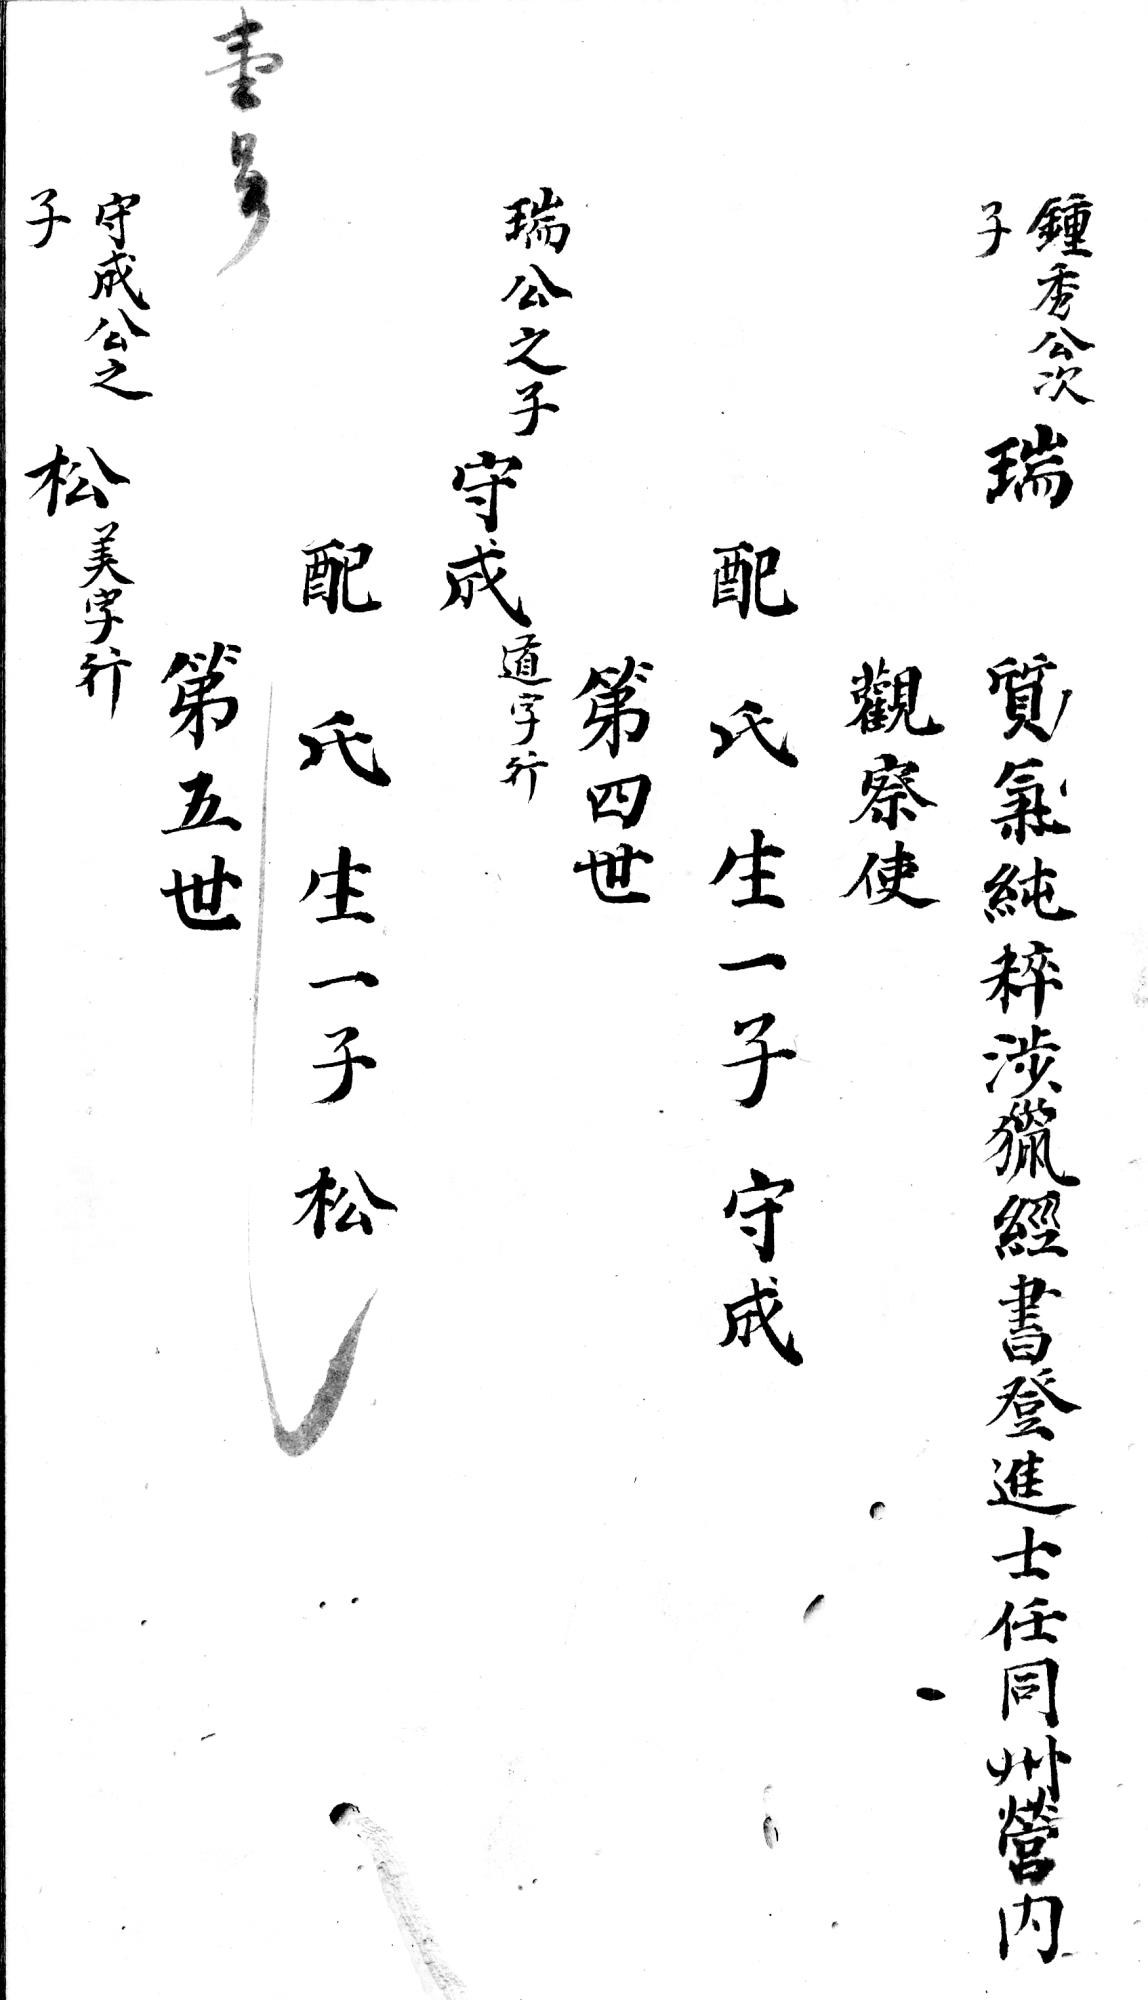 鍾秀公次
子
瑞
質氣純粹涉獵經書登進士任同州營內
觀察使
配 氏生一子 守成
第四世
瑞公之子
守成
道字行
配 氏生一子 松
壹号
第五世
守成公之
子
松
美字行